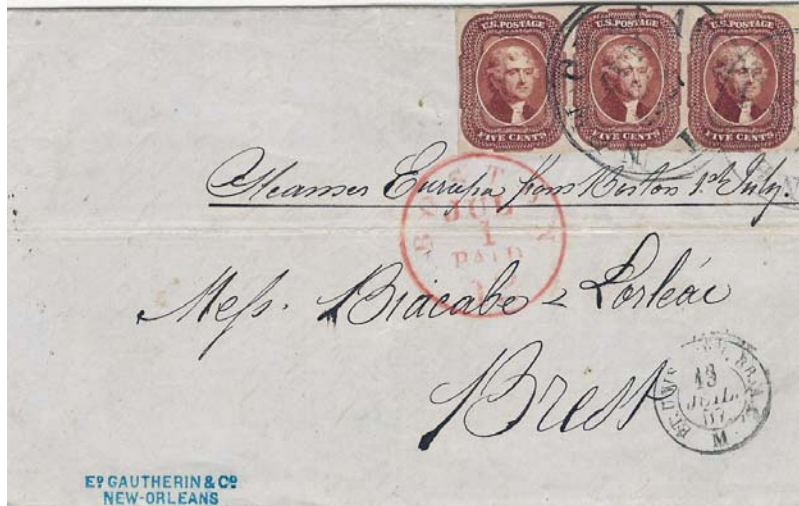 U.S. POSTAGE U.S. POSTAGE U.S. POSTAGE
FIVE CENTS FIVE CENTS FIVE CENTS
Steamer Europa from Boston 1st July.
BOSTON
JUL
1
PAID
Mess. Biacabe & Lorléac
Brest
13
JUIL.
57
M
Ed GAUTHERIN & Co
NEW-ORLEANS